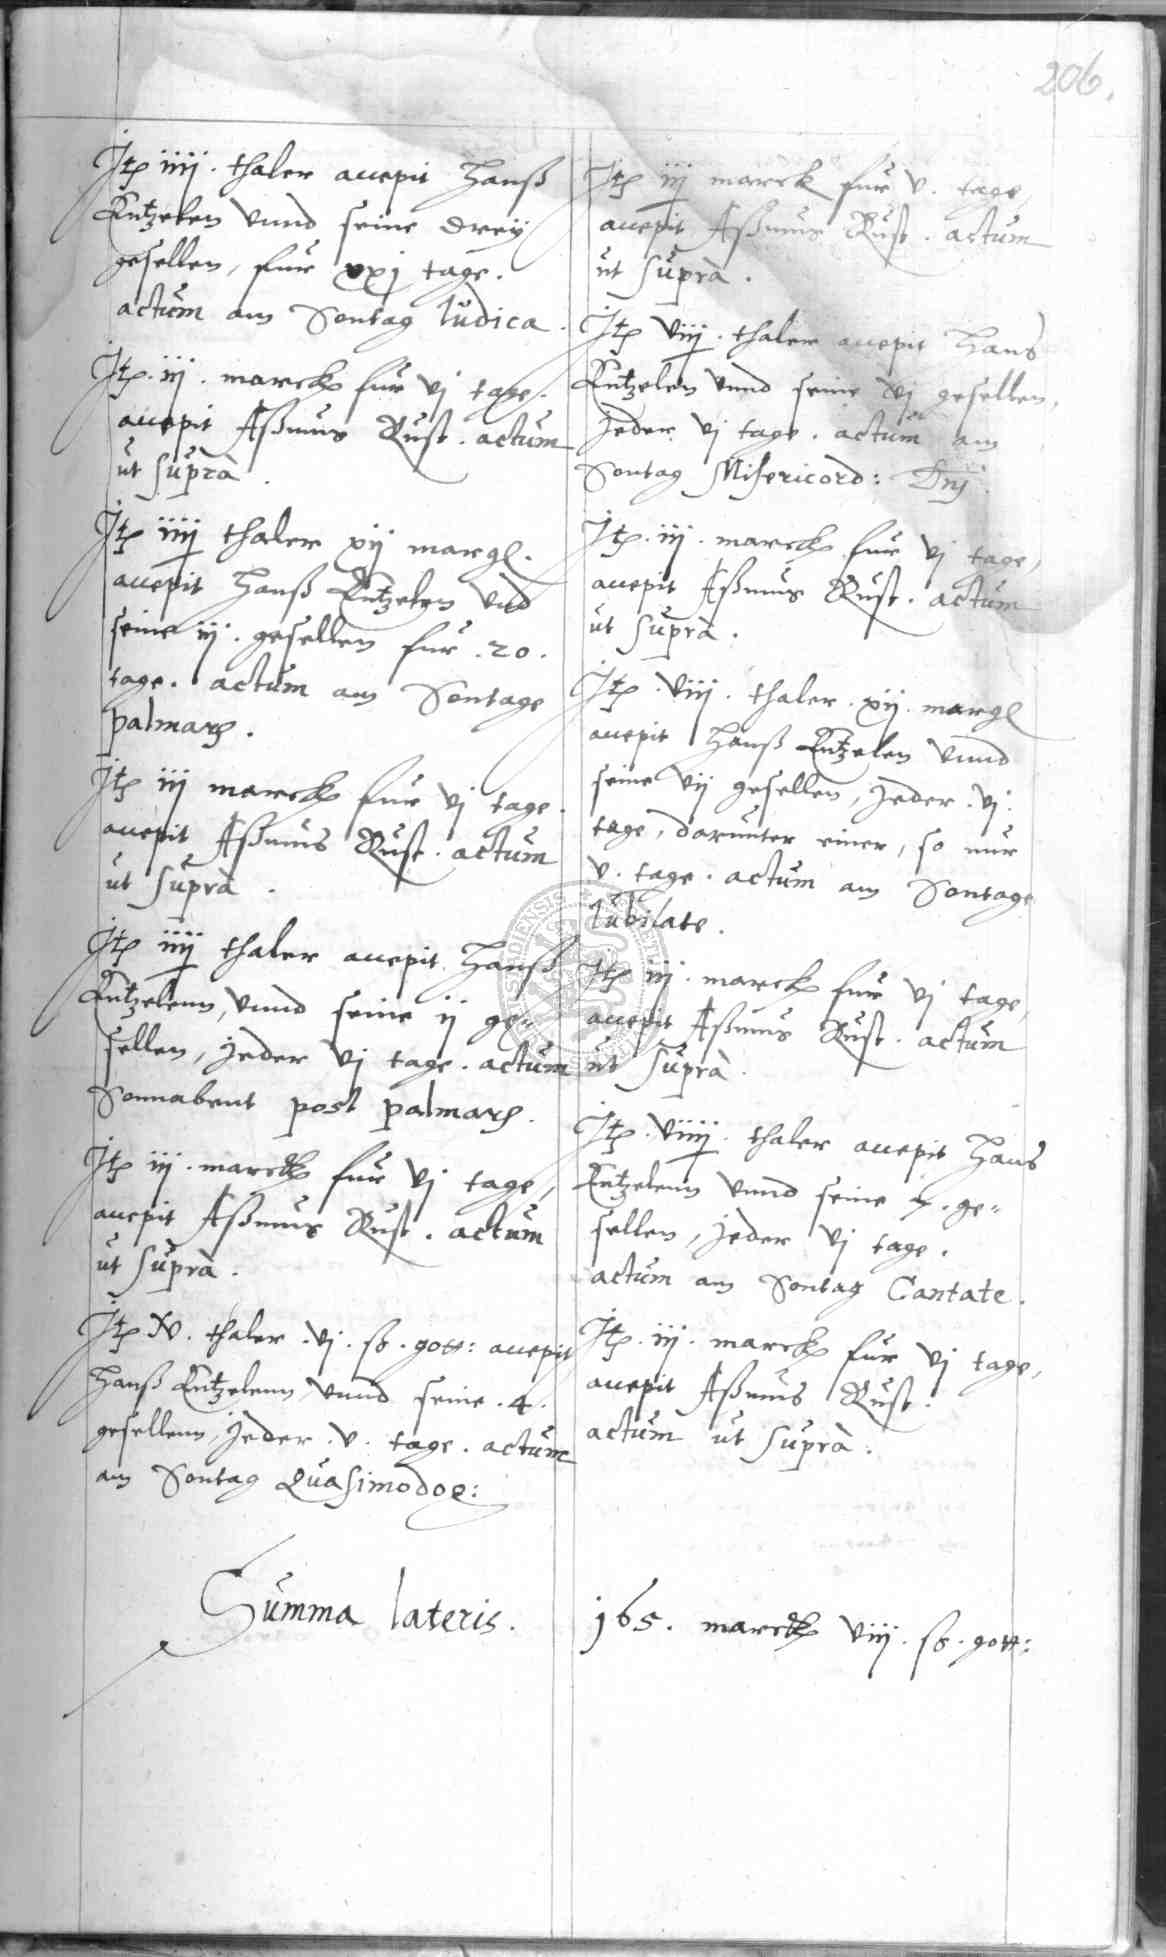 206.
Itʒ iiij. thaler accepit Hanß
Entzelen vnnd seine dreÿ
gesellen, fur xxj tage.
actum am Sontag Iudica.
Itʒ. iij. marck fur vj tage.
accepit Aßmus Rust. actum
ut suprà.
Itʒ iiij thaler xij margl.
accepit Hanß Entzelen vnd
seine iij. gesellen fur .20.
tage. actum am Sontage
palmarʒ.
Itʒ iij marck fur vj tage.
accepit Aßmus Rust. actum
ut suprà.
Itʒ iiij thaler accepit Hanß
Entzelenn, vnnd seine ij ge-
sellen, jeder vj tage. actum
Sonnabent post palmarʒ.
Itʒ iij. marck fur vj tage,
accepit Aßmus Rust. actum
ut suprà.
Itʒ V. thaler .vj. ß. gott: accepit
Hanß Entzelenn vnnd seine .4.
gesellenn, jeder .v. tage. actum
am Sontag Quasimodog:
Itʒ iij marck fur v. tage,
accepit Aßmus Rust. actum
ut suprà.
Itʒ viij. thaler accepit Hans
Entzelen vnnd seine vj gesellen,
jeder vj tage. actum am
Sontag Misericord: Dnj.
Itʒ. iij. marck fur vj tage,
accepit Aßmus Rust. actum
ut suprà.
Itʒ. viij. thaler. xij. margl
accepit Hanß Entzelen vnnd
seine vij gesellen, jeder .vj.
tage, darunter einer, so nur
v. tage. actum am Sontage
Iubilate.
Itʒ iij. marck fur vj tage,
accepit Aßmus Rust. actum
ut suprà.
Itʒ. viiij. thaler accepit Hans
Entzelenn vnnd seine 7. ge-
sellen, jeder vj tage.
actum am Sontag Cantate.
Itʒ. iij. marck fur vj tage,
accepit Aßmus Rust.
actum ut suprà.
Summa lateris. 165. marck viij. ß. gott: